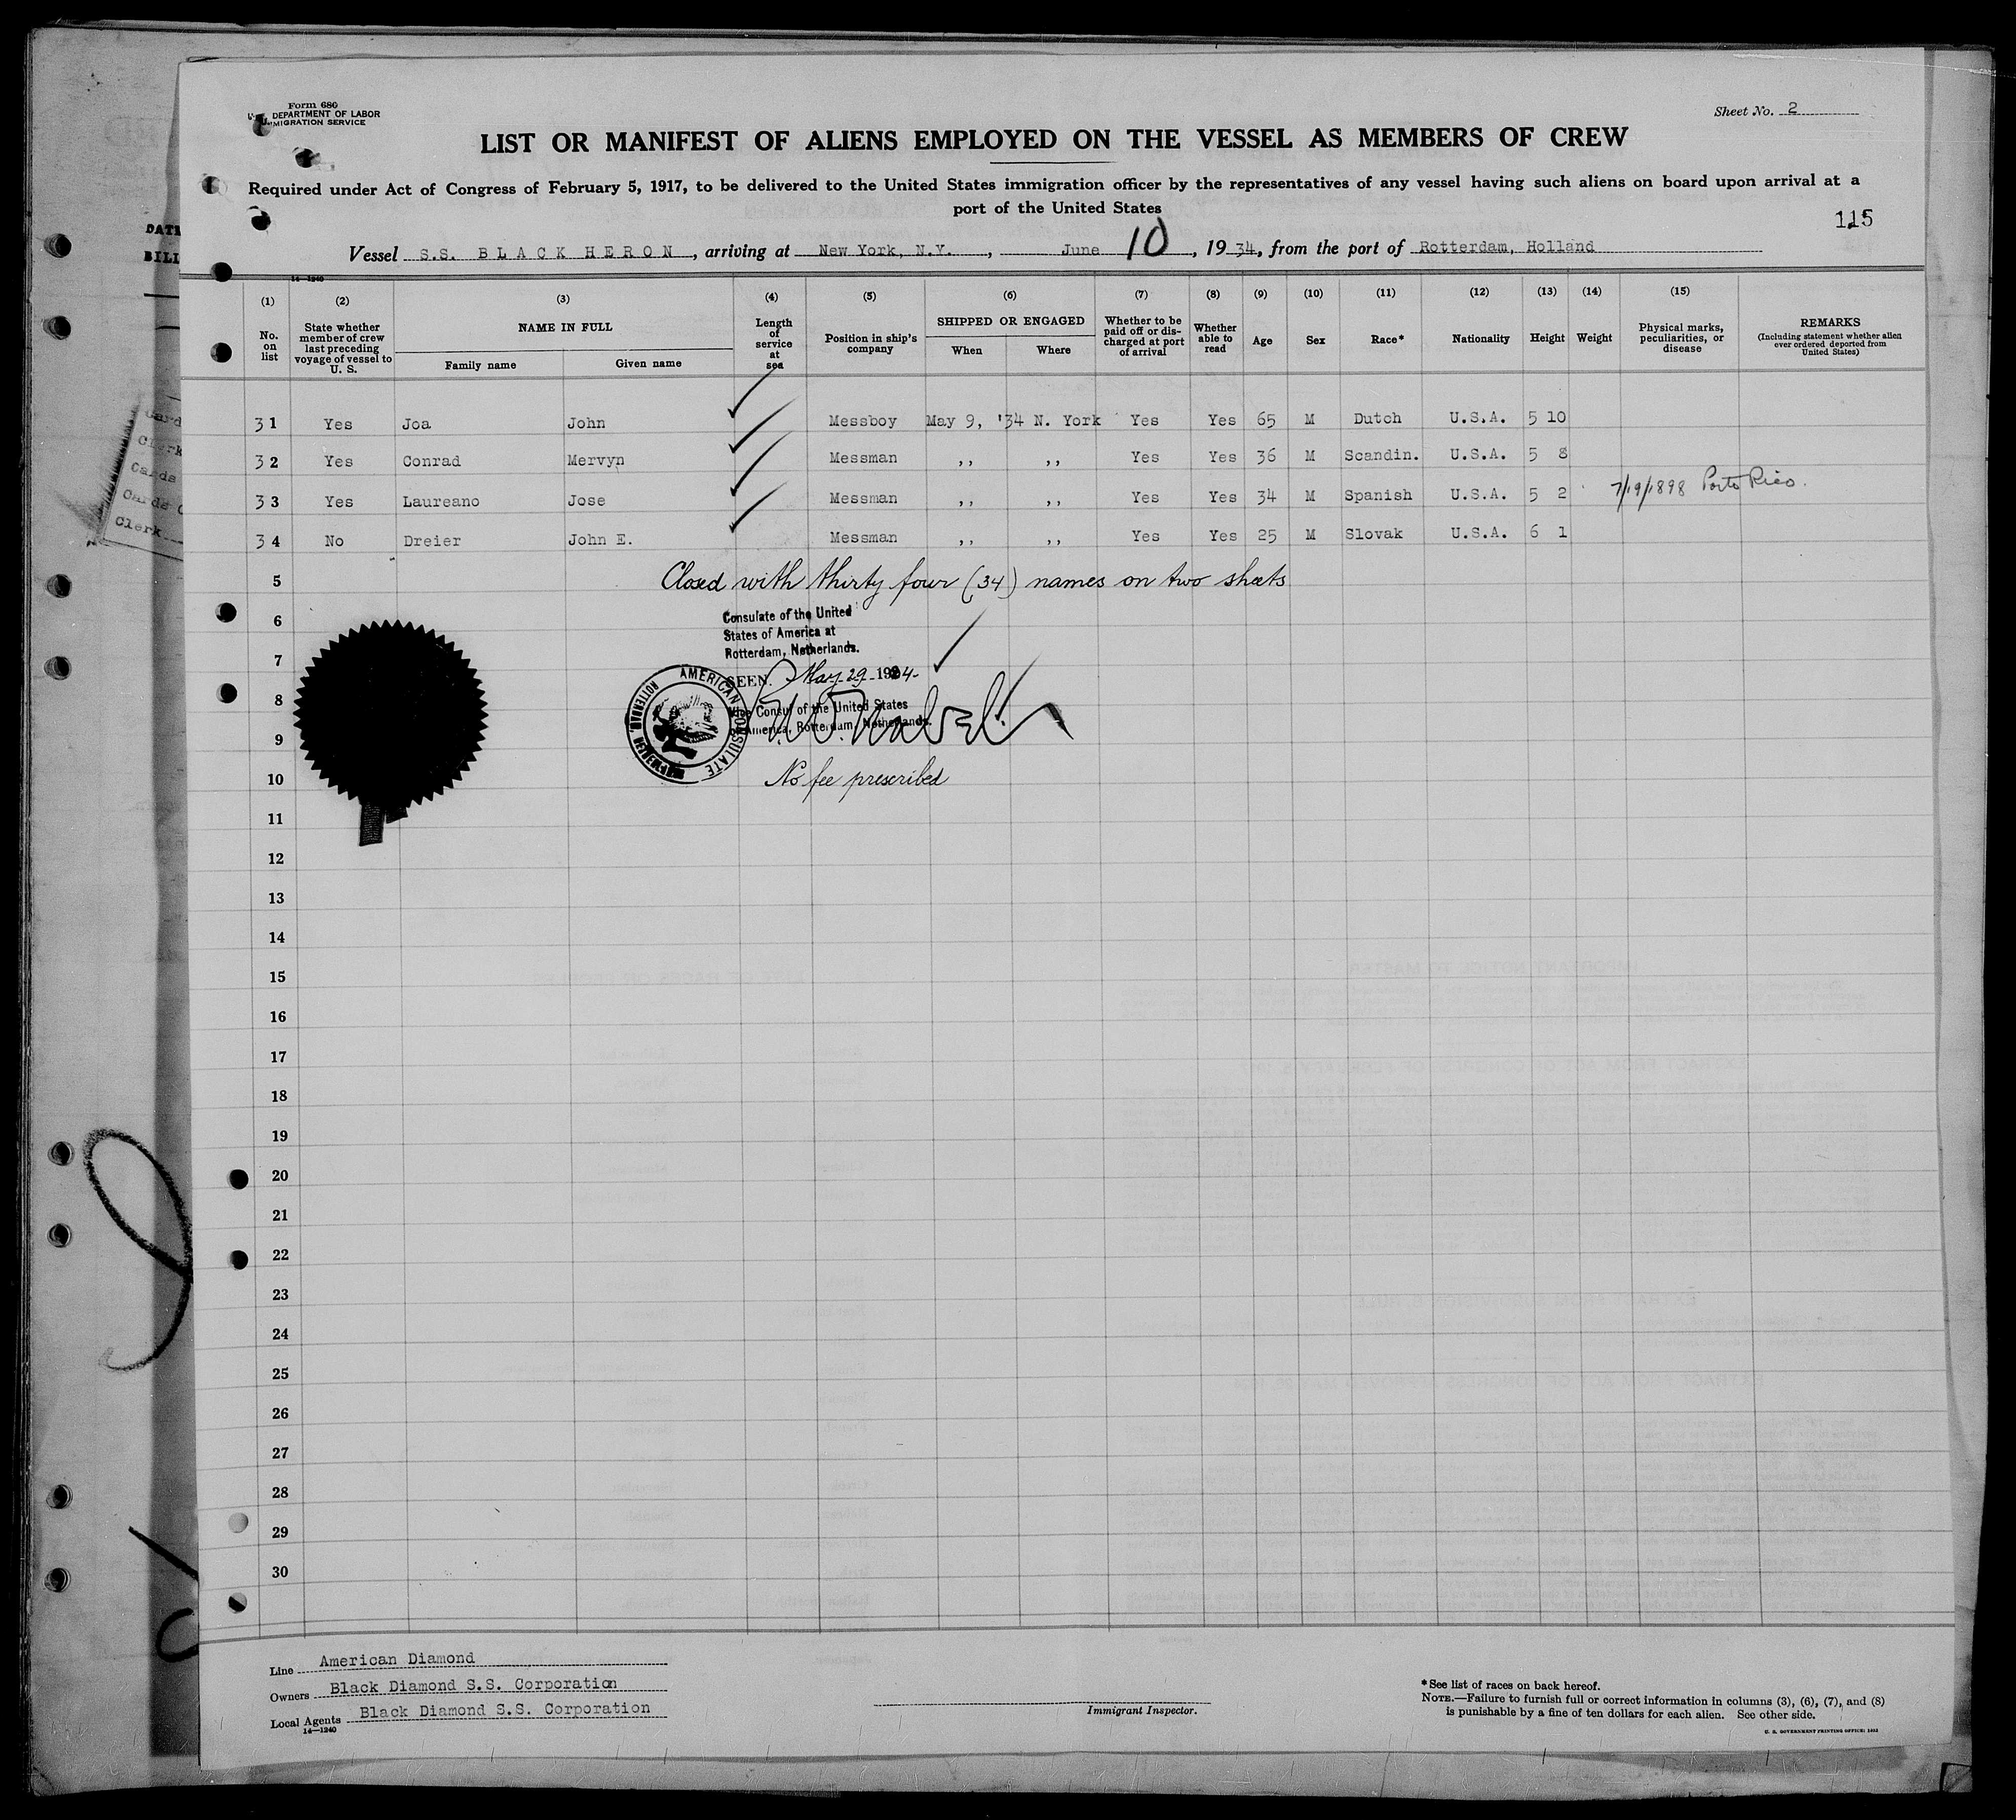 Form 680
DEPARTMENT OF LABOR
MIGRATION SERVICE
Sheet No. 2
LIST OR MANIFEST OF ALIENS EMPLOYED ON THE VESSEL AS MEMBERS OF CREW
Required under Act of Congress of February 5, 1917, to be delivered to the United States immigration officer by the representatives of any vessel having such aliens on board upon arrival at a
port of the United States
115
Vessel S.S. BLACK HERON, arriving at New York, N.Y., June 10, 1934, from the port of Rotterdam, Holland
14-1240
(1) (2) (3) (4) (5) (6) (7) (8) (9) (10) (11) (12) (13) (14) (15)
No. on list
State whether member of crew last preceding voyage of vessel to U. S.
NAME IN FULL
Family name
Given name
Length of service at sea
Position in ship's company
SHIPPED OR ENGAGED
When
Where
Whether to be paid off or discharged at port of arrival
Whether able to read
Age
Sex
Race*
Nationality
Height
Weight
Physical marks, peculiarities, or disease
REMARKS
(Including statement whether alien ever ordered deported from United States)
31 Yes Joa John Messboy May 9, '34 N. York Yes Yes 65 M Dutch U.S.A. 5 10
32 Yes Conrad Mervyn Messman ,, ,, Yes Yes 36 M Scandin. U.S.A. 5 8
33 Yes Laureano Jose Messman ,, ,, Yes Yes 34 M Spanish U.S.A. 5 2 7/19/1898 Porto Rico.
34 No Dreier John E. Messman ,, ,, Yes Yes 25 M Slovak U.S.A. 6 1
5 Closed with thirty four (34) names on two sheets
6 Consulate of the United
States of America at
7 Rotterdam, Netherlands.
SEEN. May 29 1934
8 Vice Consul of the United States
9 of America, Rotterdam, Netherlands.
AMERICAN CONSULATE
ROTTERDAM, NETHERLANDS
10 No fee prescribed
11
12
13
14
15
16
17
18
19
20
21
22
23
24
25
26
27
28
29
30
Line American Diamond
Owners Black Diamond S.S. Corporation
Local Agents Black Diamond S.S. Corporation
14-1240
Immigrant Inspector.
*See list of races on back hereof.
NOTE.—Failure to furnish full or correct information in columns (3), (6), (7), and (8)
is punishable by a fine of ten dollars for each alien. See other side.
U. S. GOVERNMENT PRINTING OFFICE: 1933
DATE
BILL
Cards
Clerk
Cards
Cards
Clerk